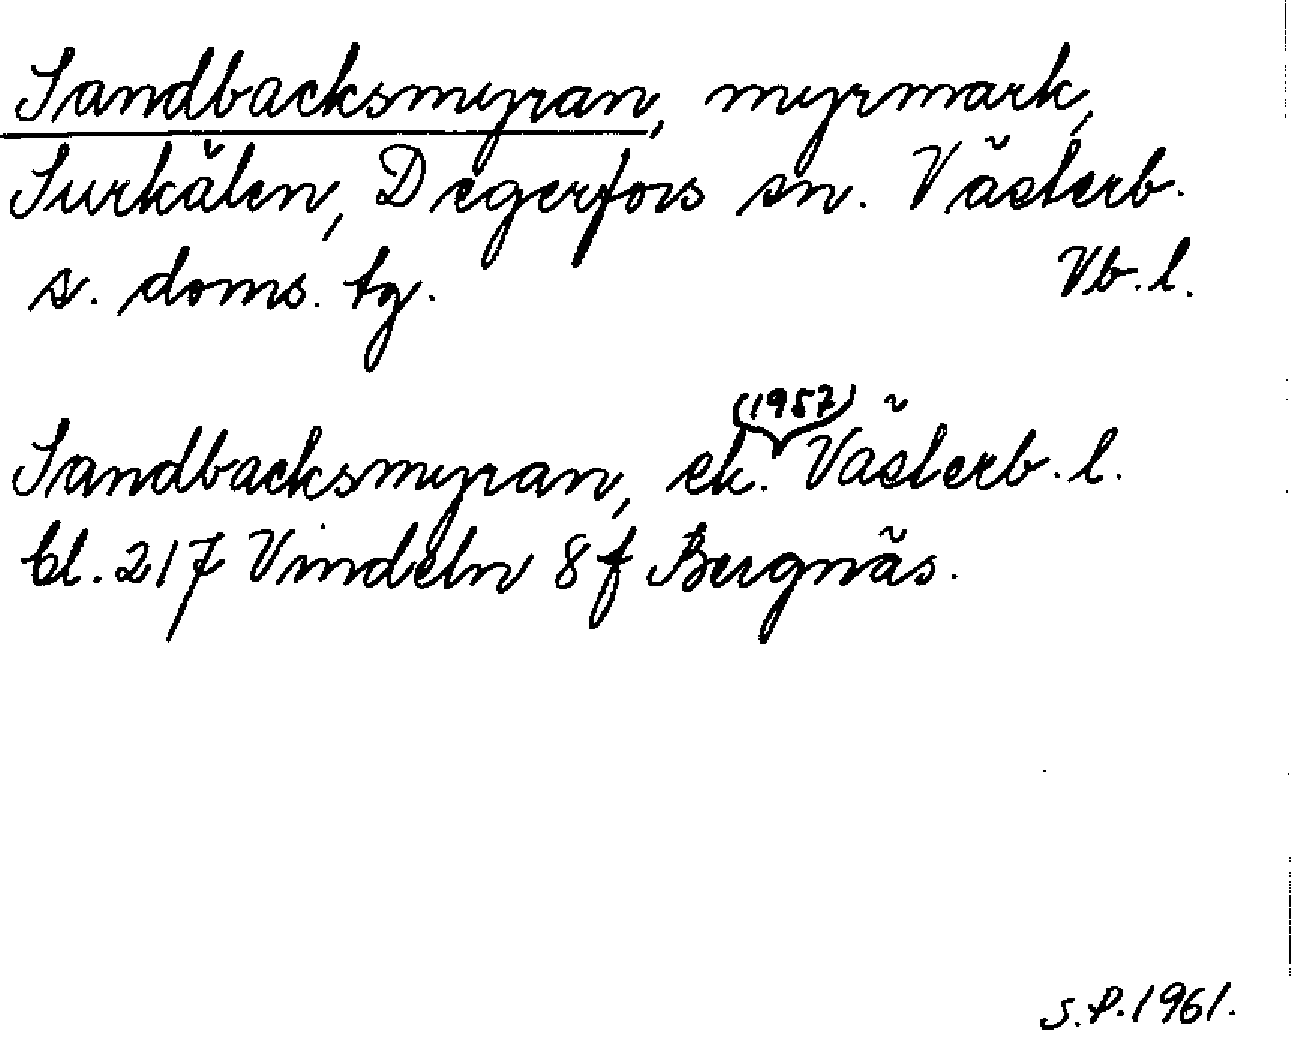 Sandbacksmyran, myrmark,
Surkålen, Degerfors sn. Västerb.
s. doms. tg. Vb. l.
(1957)
Sandbacksmyran, ek. Västerb. l.
bl. 217 Vindeln 8f Bergnäs.
S. P. 1961.